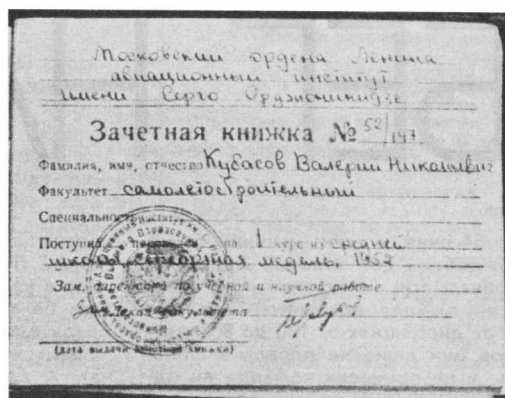 Московский ордена Ленина
авиационный институт
имени Серго Орджоникидзе
Зачетная книжка № 52/147
Фамилия, имя, отчество Кубасов Валерий Николаевич
Факультет самолетостроительный
Специальность
Поступил 1 курс из средней
школы, серебряная медаль, 1952
Зам. директора по учебной и научной работе
Декан факультета
(дата выдачи зачетной книжки)